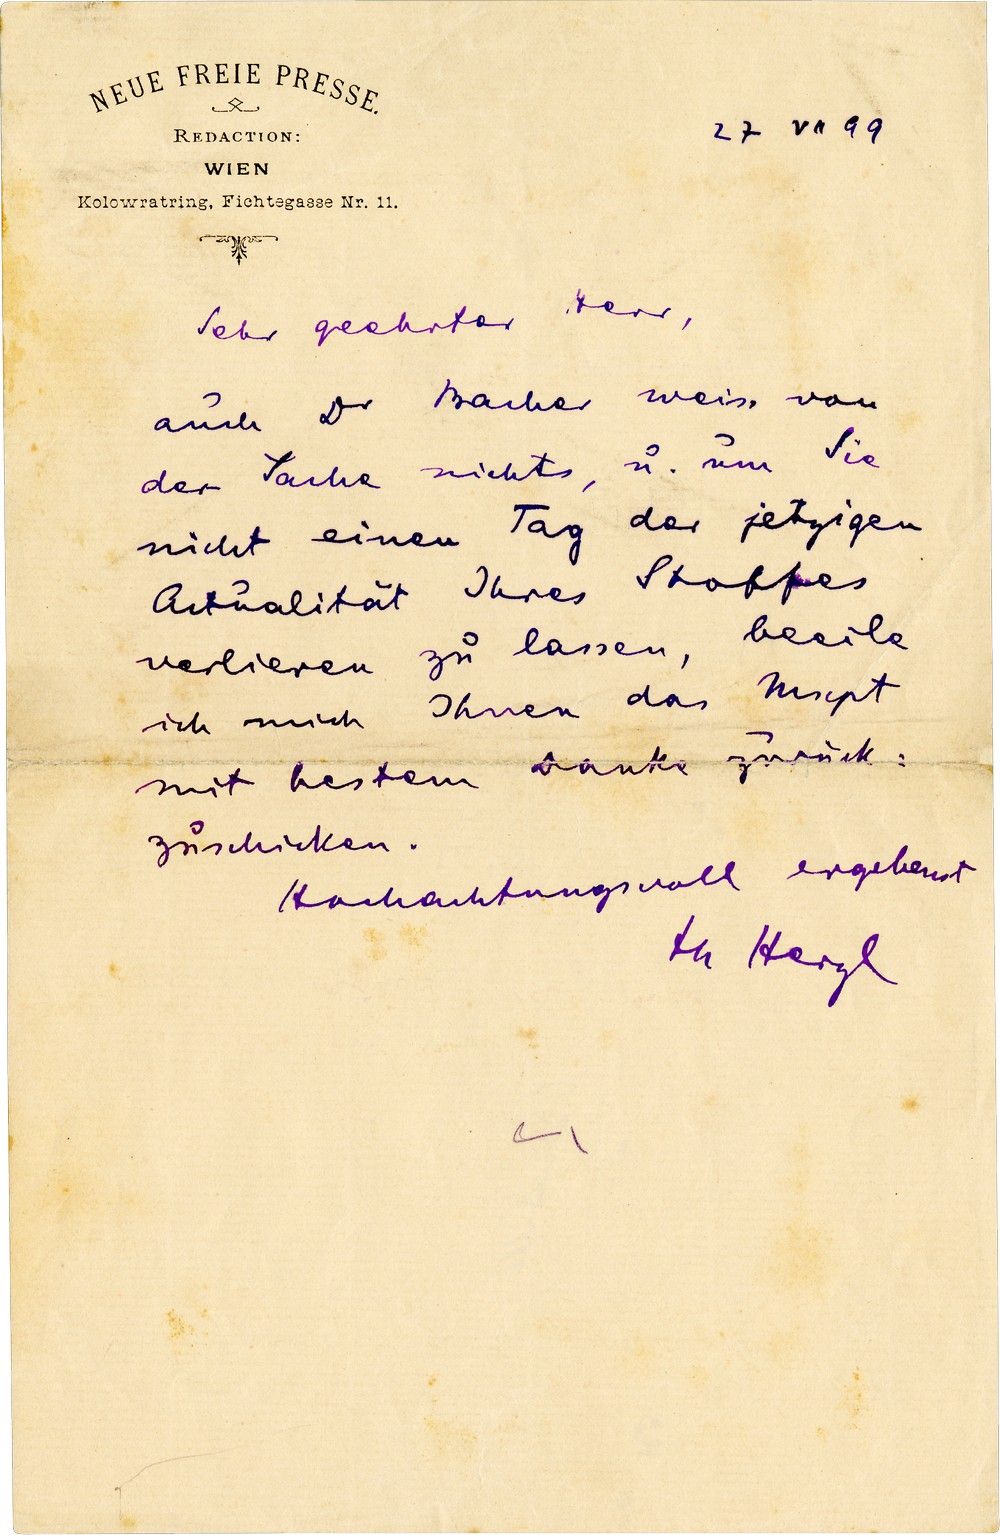 NEUE FREIE PRESSE.
REDACTION:
WIEN
Kolowratring, Fichtegasse Nr. 11.
27 VII 99
Sehr geehrter Herr,
auch Dr Bacher weiss von
der Sache nichts, u. um Sie
nicht einen Tag der jetzigen
Actualität Ihres Stoffes
verlieren zu lassen, beeile
ich mich Ihnen das Mscpt
mit bestem Danke zurück:
zuschicken.
Hochachtungsvoll ergebenst
Th Herzl